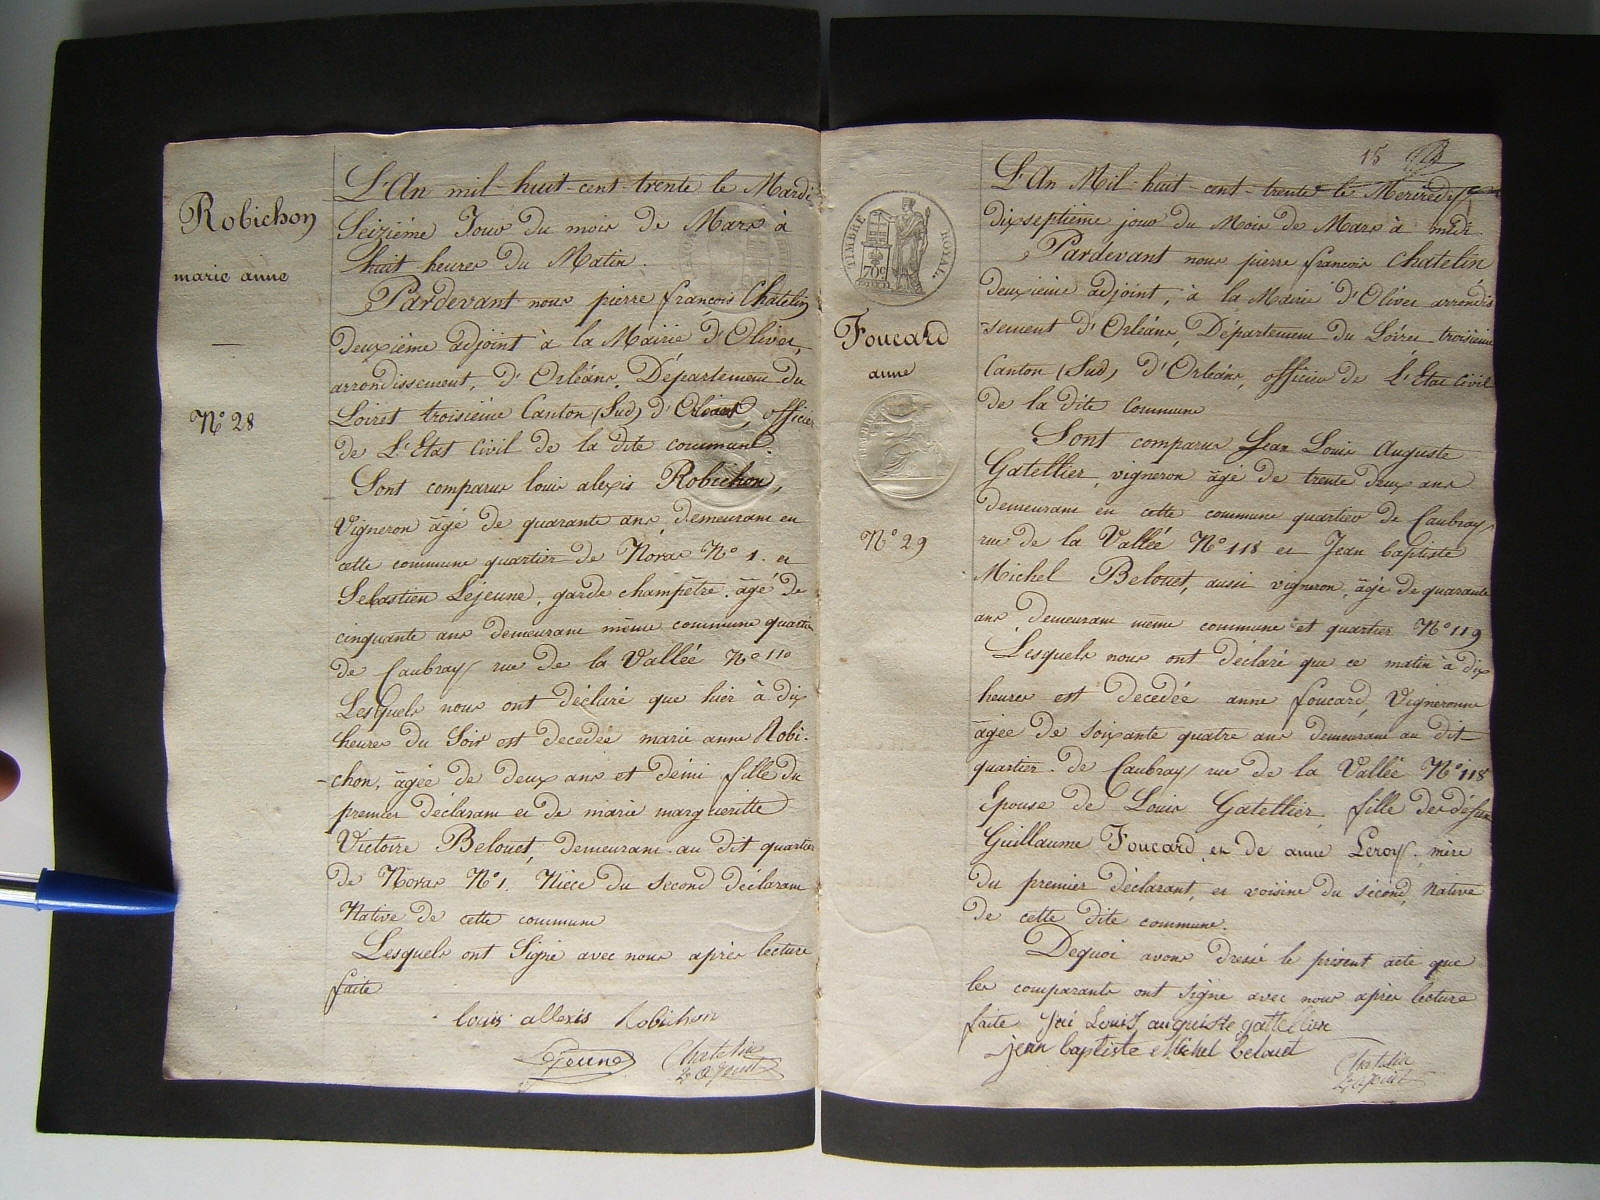 Robichon
marie anne
N° 28
L'An mil-huit-cent-trente le Mardi
Seizième Jour du mois de Mars à
huit heures du Matin.
Pardevant nous pierre françois Chatelin
deuxième adjoint à la Mairie d'Olivet,
arrondissement, d'Orléans, Département du
Loiret troisième Canton (Sud) d'Orléans, officier
de L'Etat Civil de la dite commune.
Sont comparus louis alexis Robichon,
Vigneron âgé de quarante ans, demeurant en
cette commune quartier de Noras N° 1. et
Sebastien Lejeune, garde champêtre, âgé de
cinquante ans demeurant même commune quartier
de Caubray rue de la Vallée N° 110
Lesquels nous ont déclaré que hier à dix
heures du Soir est decedée marie anne Robi-
-chon, âgée de deux ans et demi fille du
premier déclarant et de marie margueritte
Victoire Belouet, demeurant au dit quartier
de Noras N° 1. Nièce du second déclarant
Native de cette commune
Lesquels ont Signé avec nous après lecture
faite
louis allexis Robichon
Lejeune
Chatelin
2e adjoint
15
TIMBRE ROYAL.
70c
Foucard
anne
N° 29
L'An Mil-huit-cent-trente le Mercredi
dix septième jour du Mois de Mars à midi.
Pardevant nous pierre françois Chatelin
deuxième adjoint, à la Mairie d'Olivet arrondis
-sement d'Orléans, Département du Loiret troisième
Canton (Sud) d'Orléans, officier de L'Etat Civil
de la dite commune
Sont comparus Jean Louis Auguste
Gatellier, vigneron âgé de trente deux ans
demeurant en cette commune quartier de Caubray
rue de la Vallée N° 118 et Jean baptiste
Michel Belouet, aussi vigneron, âgé de quarante
ans demeurant même commune et quartier N° 119
Lesquels nous ont déclaré que ce matin à dix
heures est decedée anne foucard, Vigneronne
âgée de soixante quatre ans demeurant au dit
quartier de Caubray rue de la Vallée N° 118
Epouse de Louis Gatellier, fille de défunt
Guillaume Foucard, et de anne Leroy, mère
du premier déclarant, et voisine du second, Native
de cette dite commune.
Dequoi avons dressé le présent acte que
les comparants ont signé avec nous après lecture
faite Jean Louis auguiste gattellier
jean baptiste Michel belouet
Chatelin
2e adjoint